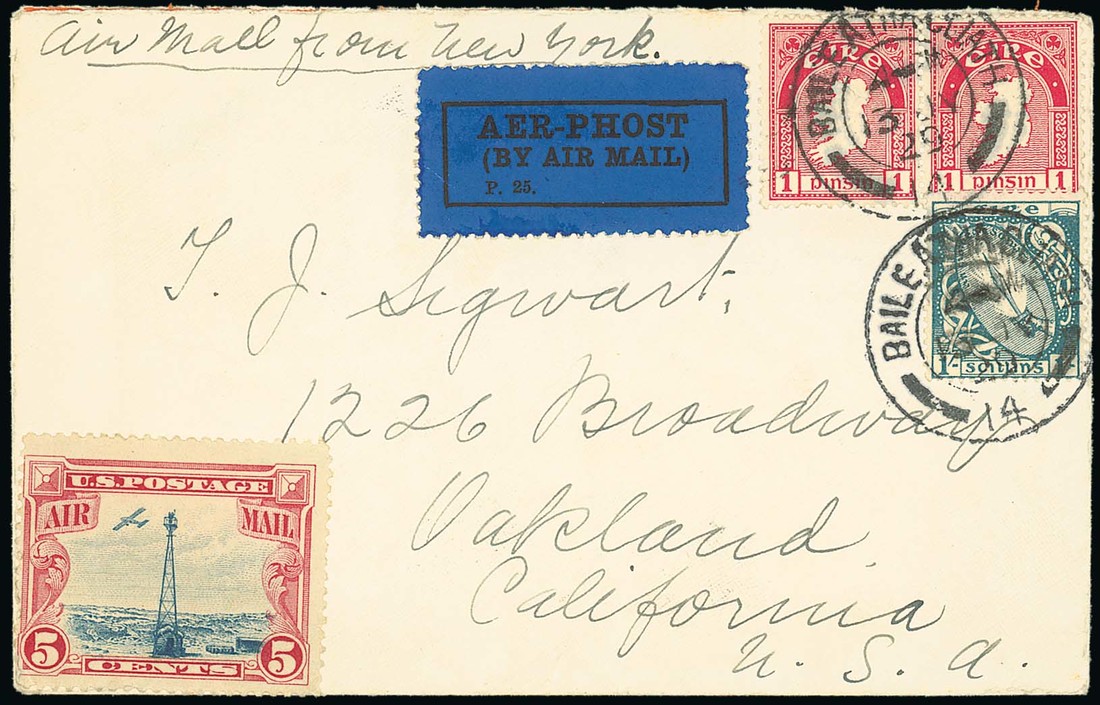 Air Mail from New York.
AER-PHOST
(BY AIR MAIL)
P. 25.
éire
1 pinsin 1
éire
1 pinsin 1
BAILE ÁTHA CLIATH
29
14
T. J. Sigwart,
1226 Broadway
Oakland
California
U. S. A.
1/- scilling 1/-
BAILE ÁTHA CLIATH
14
U.S. POSTAGE
AIR MAIL
5 CENTS 5